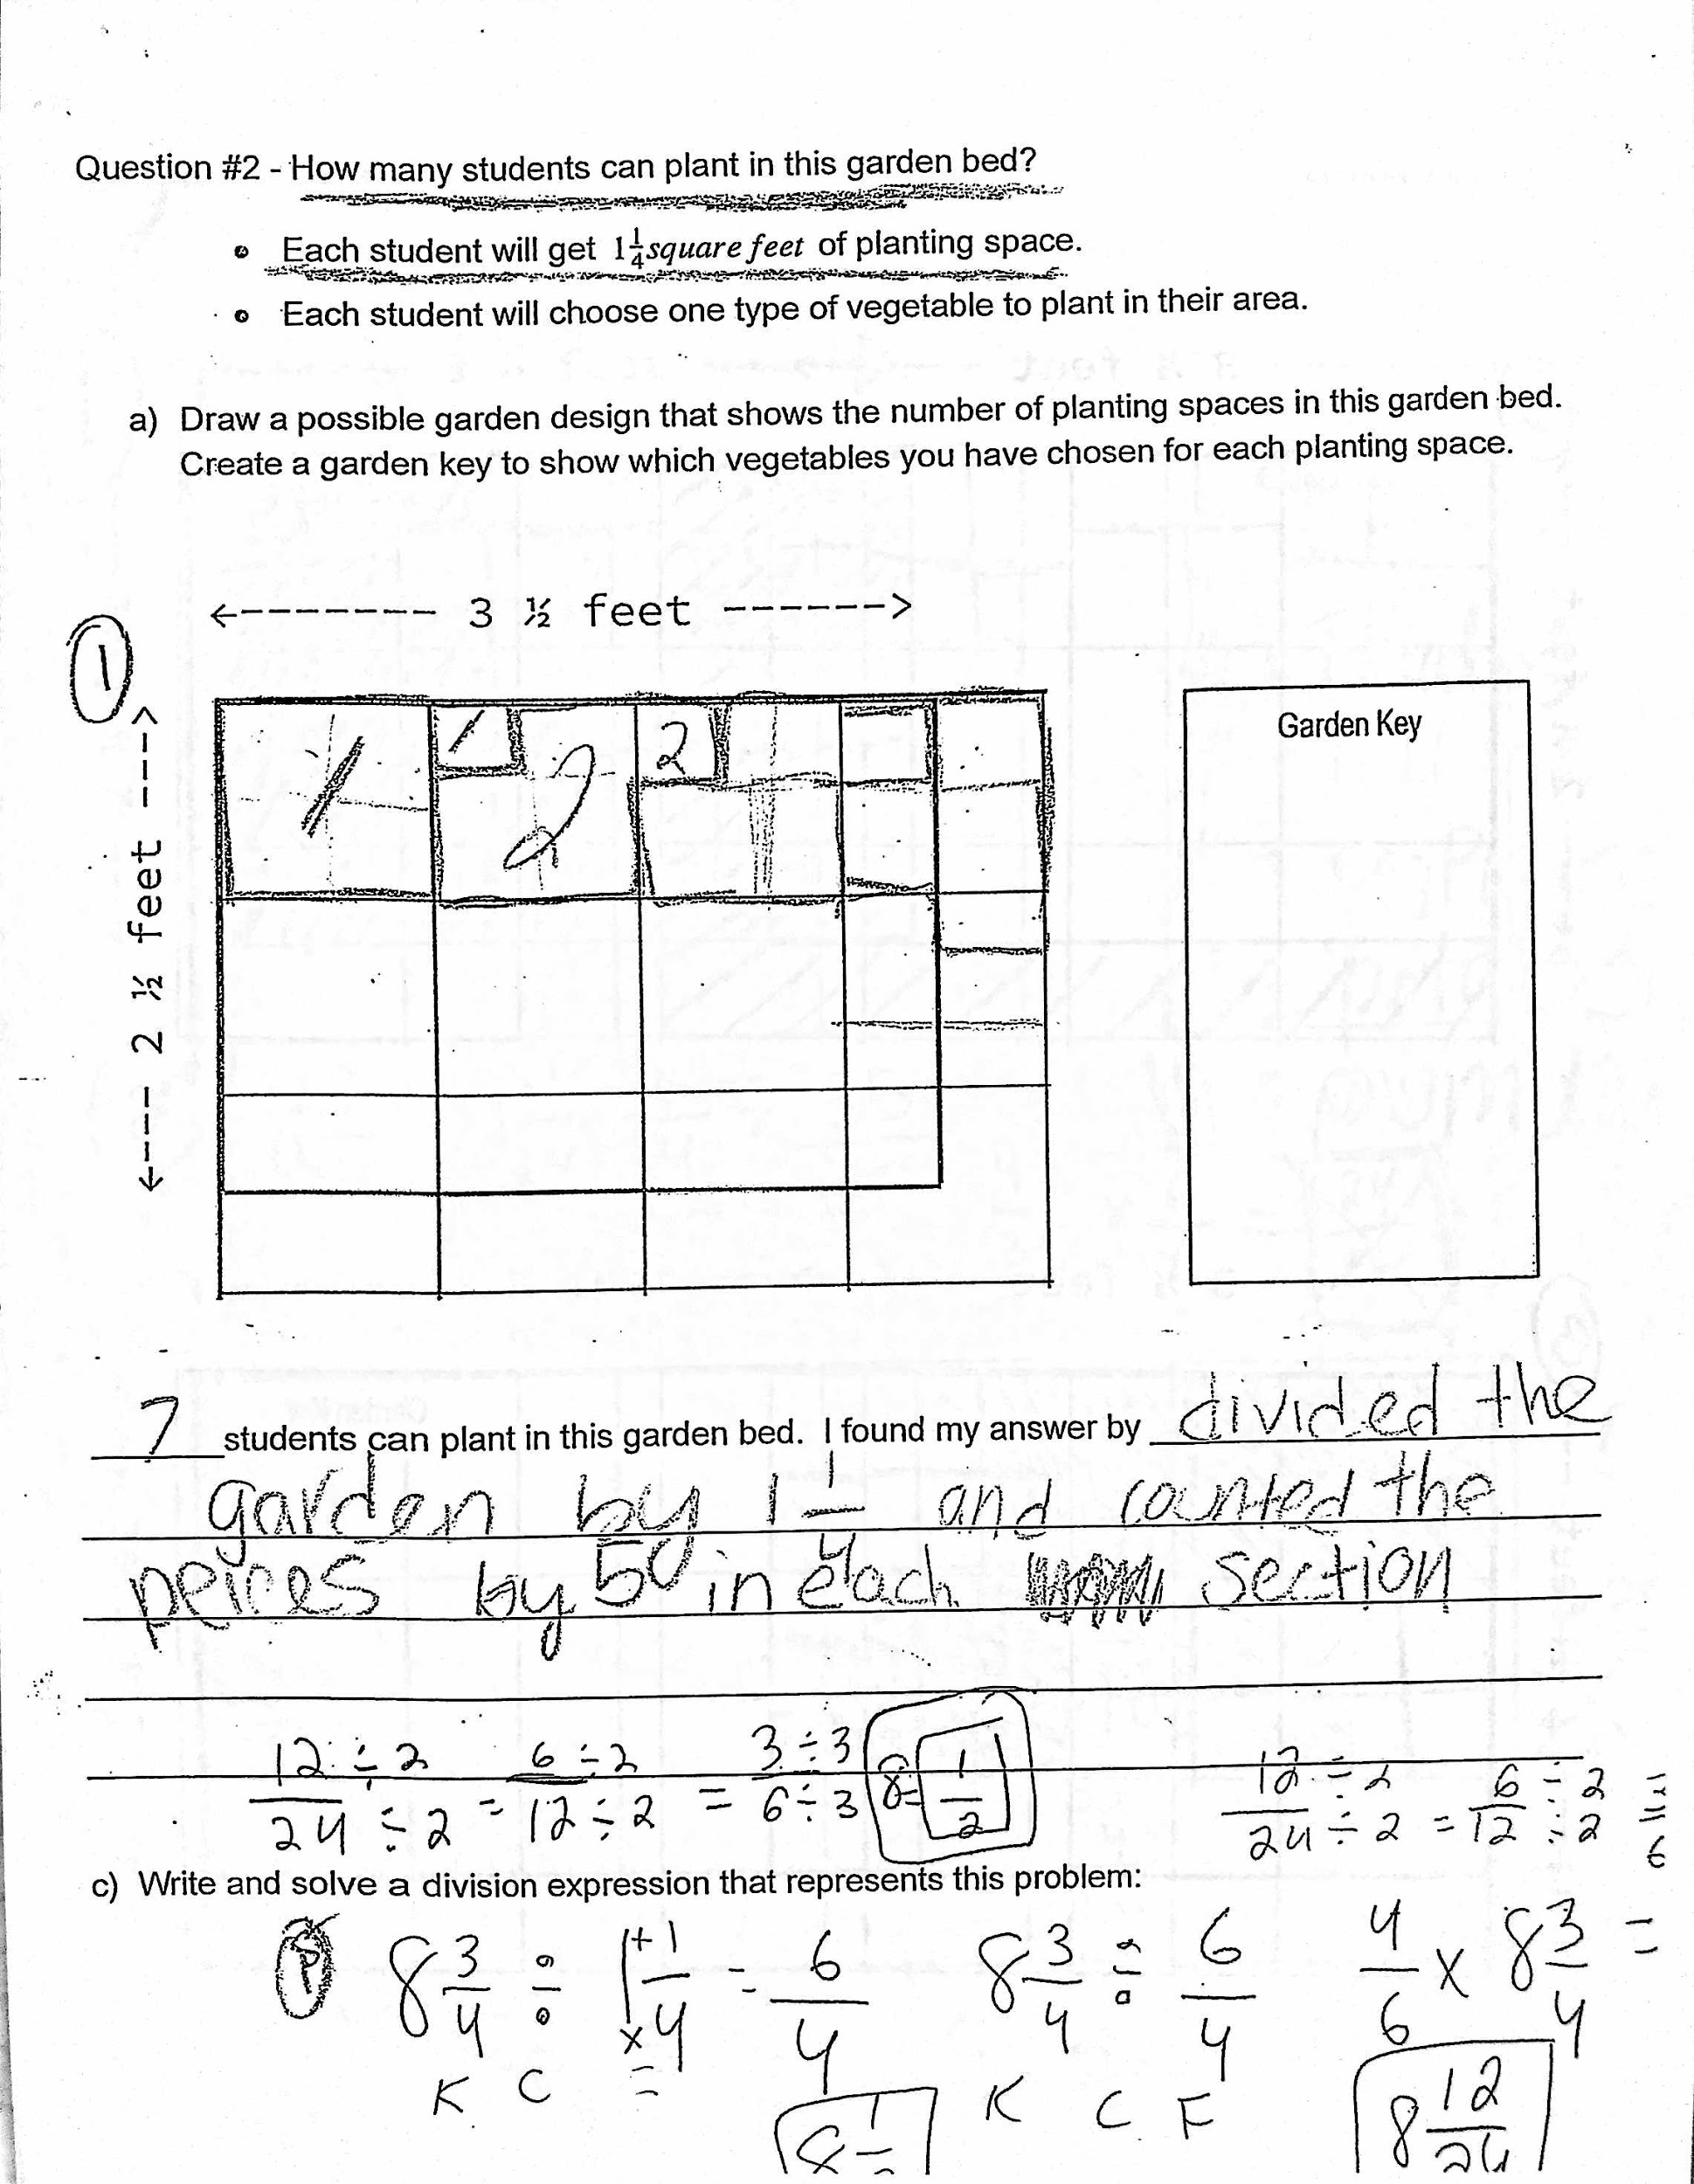 Question #2 - How many students can plant in this garden bed?
• Each student will get 1 1/4 square feet of planting space.
• Each student will choose one type of vegetable to plant in their area.
a) Draw a possible garden design that shows the number of planting spaces in this garden bed.
Create a garden key to show which vegetables you have chosen for each planting space.
<-------- 3 ½ feet ------->
1
<--- 2 ½ feet ---->
1 1 2 2
Garden Key
7 students can plant in this garden bed. I found my answer by divided the
garden by 1 1/4 and counted the
peices by 50 in each section
12 ÷ 2 / 24 ÷ 2 = 6 ÷ 2 / 12 ÷ 2 = 3 ÷ 3 / 6 ÷ 3 8 = 1/2
12 ÷ 2 / 24 ÷ 2 = 6 ÷ 2 / 12 ÷ 2 =
c) Write and solve a division expression that represents this problem:
8 3/4 ÷ 1 + 1 / x 4 = 6/4 8 3/4 ÷ 6/4 4/6 x 8 3/4 =
K C = K C F 8 12/24